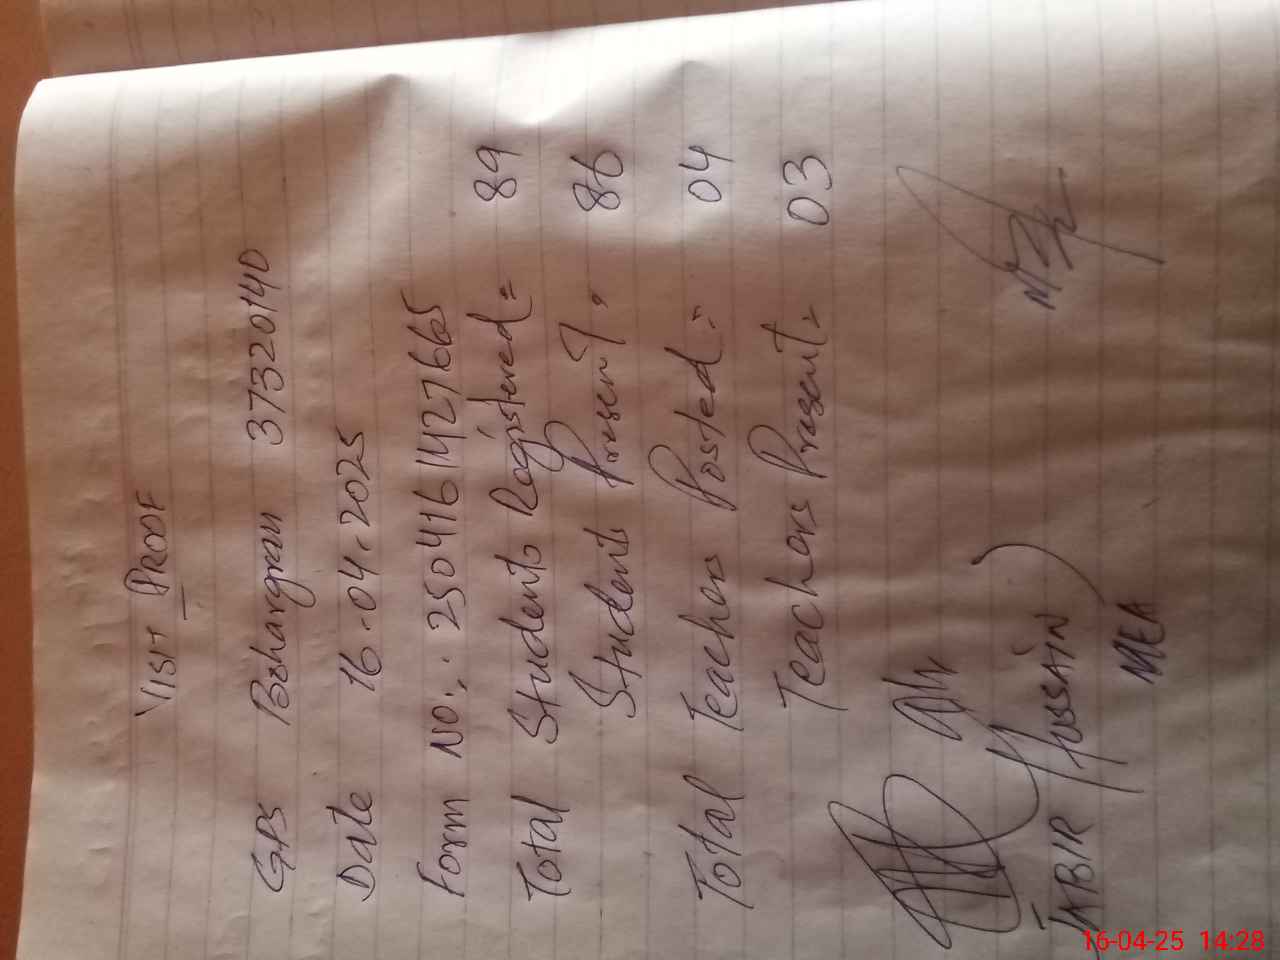 VISIT PROOF
GPS Bzhargran 37320140
Date 16.04.2025
Form NO:. 2504161427665
Total Students Registered = 89
Students Present, 86
Total Teachers Posted:- 04
Teachers Present, 03
JABIR HUSSAIN
MEA
16-04-25 14:28